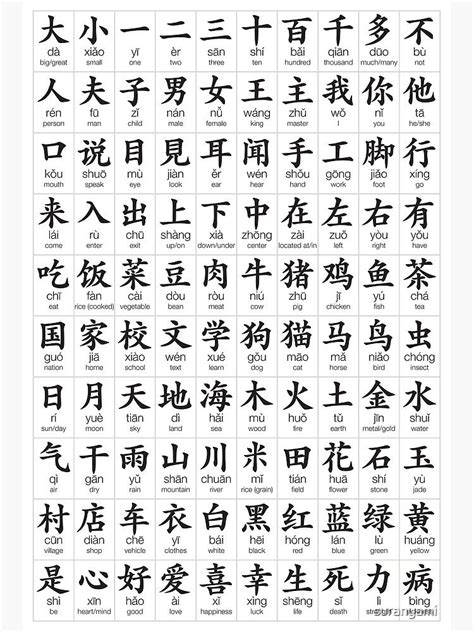 大 小 一 二 三 十 百 千 多 不
dà xiǎo yī èr sān shí bǎi qiān duō bù
big/great small one two three ten hundred thousand much/many not
人 夫 子 男 女 王 主 我 你 他
rén fū zǐ nán nǚ wáng zhǔ wǒ nǐ tā
person man child male female king master I you he/she
口 说 目 見 耳 闻 手 工 脚 行
kǒu shuō mù jiàn ěr wén shǒu gōng jiǎo xíng
mouth speak eye look ear hear hand work foot go
来 入 出 上 下 中 在 左 右 有
lái rù chū shàng xià zhōng zài zuǒ yòu yǒu
come enter exit up/on down/under center located at/in left right have
吃 饭 菜 豆 肉 牛 猪 鸡 鱼 茶
chī fàn cài dòu ròu niú zhū jī yú chá
eat rice (cooked) vegetable bean meat cow pig chicken fish tea
国 家 校 文 学 狗 猫 马 鸟 虫
guó jiā xiào wén xué gǒu māo mǎ niǎo chóng
nation home school text learn dog cat horse bird insect
日 月 天 地 海 木 火 土 金 水
rí yuè tiān dì hǎi mù huǒ tǔ jīn shuǐ
sun/day moon sky land sea wood fire earth metal/gold water
气 干 雨 山 川 米 田 花 石 玉
qì gān yǔ shān chuān mǐ tián huā shí yù
air dry rain mountain river rice (grain) field flower stone jade
村 店 车 衣 白 黑 红 蓝 绿 黄
cūn diàn chē yī bái hēi hóng lán lǜ huáng
village shop vehicle clothes white black red blue green yellow
是 心 好 爱 喜 幸 生 死 力 病
shì xīn hǎo ài xǐ xìng shēng sǐ lì bìng
be heart/mind good/like love happiness luck life/grow death illness
surangami